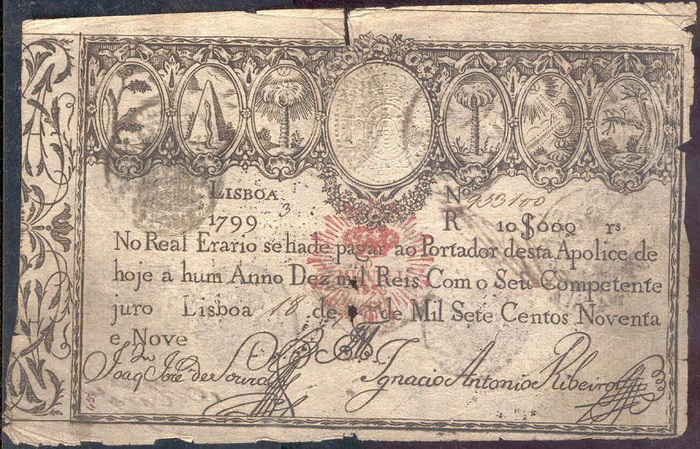 LISBOA Nº 933100
1799 R 10$000 rs
No Real Erario se hade pagar ao Portador desta Apolice de
hoje a hum Anno Dez mil Reis Com o Seu Competente
juro Lisboa 18 de de Mil Sete Centos Noventa
e Nove
Joaqm Jose de Souza Ignacio Antonio Ribeiro